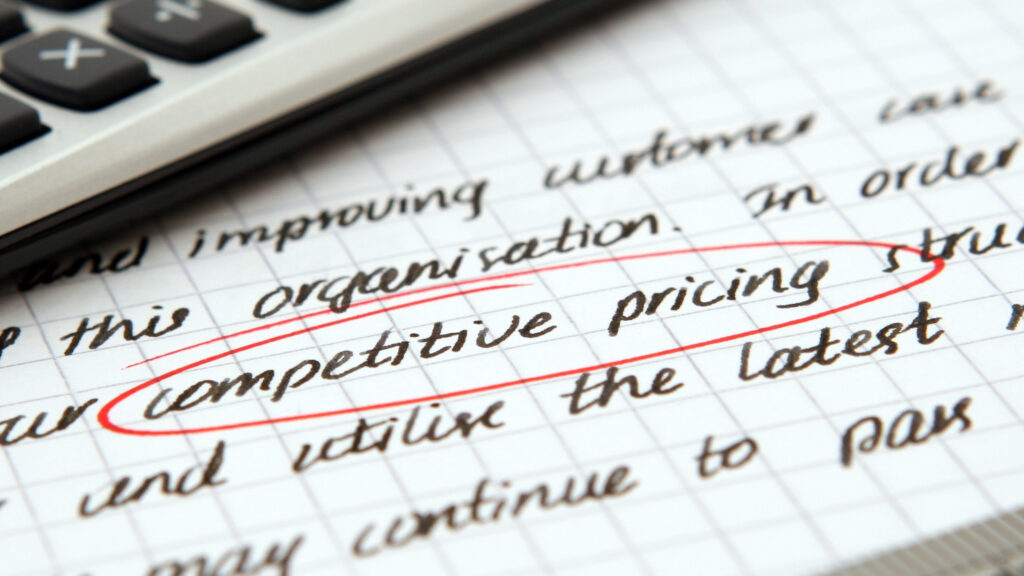 × ÷
and improving customer care
this organisation. In order
our competitive pricing struc
and utilise the latest
may continue to pass